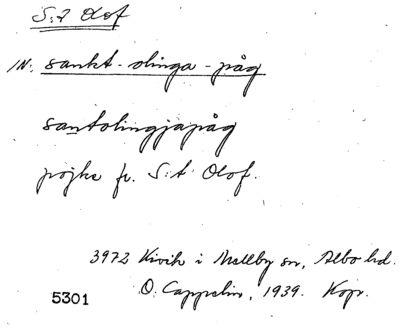 S:t Olof
IN: sankt-olinga-påg
santolingjapåg
pojke fr. S:t Olof.
3972 Kivik i Mellby sn, Albo hd.
O. Cappelin, 1939. Kopr.
5301